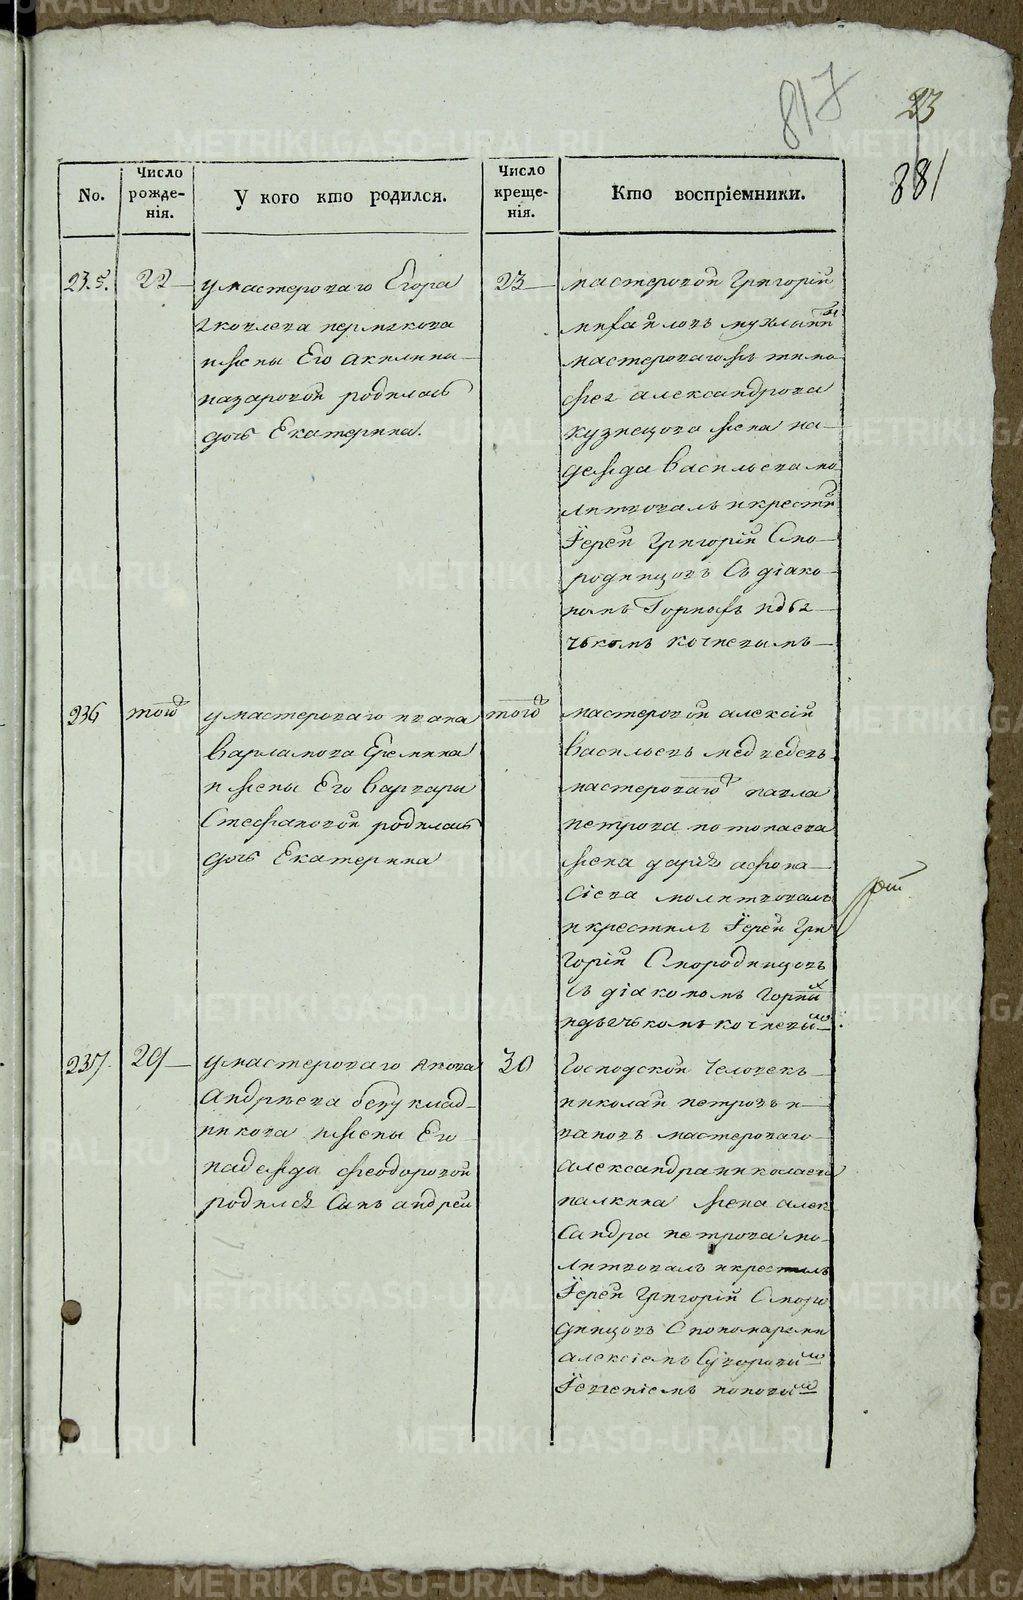 817
23
881
No.
Число рожде-
нія.
У кого кто родился.
Число креще-
нія.
Кто воспріемники.
235.
22
у мастероваго Егора
яковлева пермякова
и жены Его акилины
назаровой родилась
дочь Екатерина.
23
мастеровой григорій
михайловъ
мастероваго жъ тимо
фея александрова
кузнецова жена на-
дежда васильева мо
литвовалъ и крестил
Іерей григорій Смо-
родинцовъ Съ діако-
номъ Горных и дья-
чькомъ кочневымъ
236
того
у мастероваго ивана
варламова Еремина
и жены Его варвары
Стефановой родилась
дочь Екатерина
того
мастеровой алексій
васильевъ медведевъ
мастероваго павла
петрова потопаева
жена дарья афона-
сіева молитвовалъ
и крестилъ Іерей гри
горій Смородинцовъ
съ діакономъ горных
и дьечькомъ кочневым
237
29
у мастероваго якова
андреева
и жены Его
надежды феодоровой
родился Сынъ андрей
30
Господской человекъ
николай петровъ и-
вановъ мастероваго
александра николаева
палкина жена алек
сандра петрова мо-
литвовалъ и крестилъ
Іерей григорій Сморо
динцовъ С пономарями
алексіемъ Суворовым
Іевгеніемъ поповым
METRIKI.GASO-URAL.RU